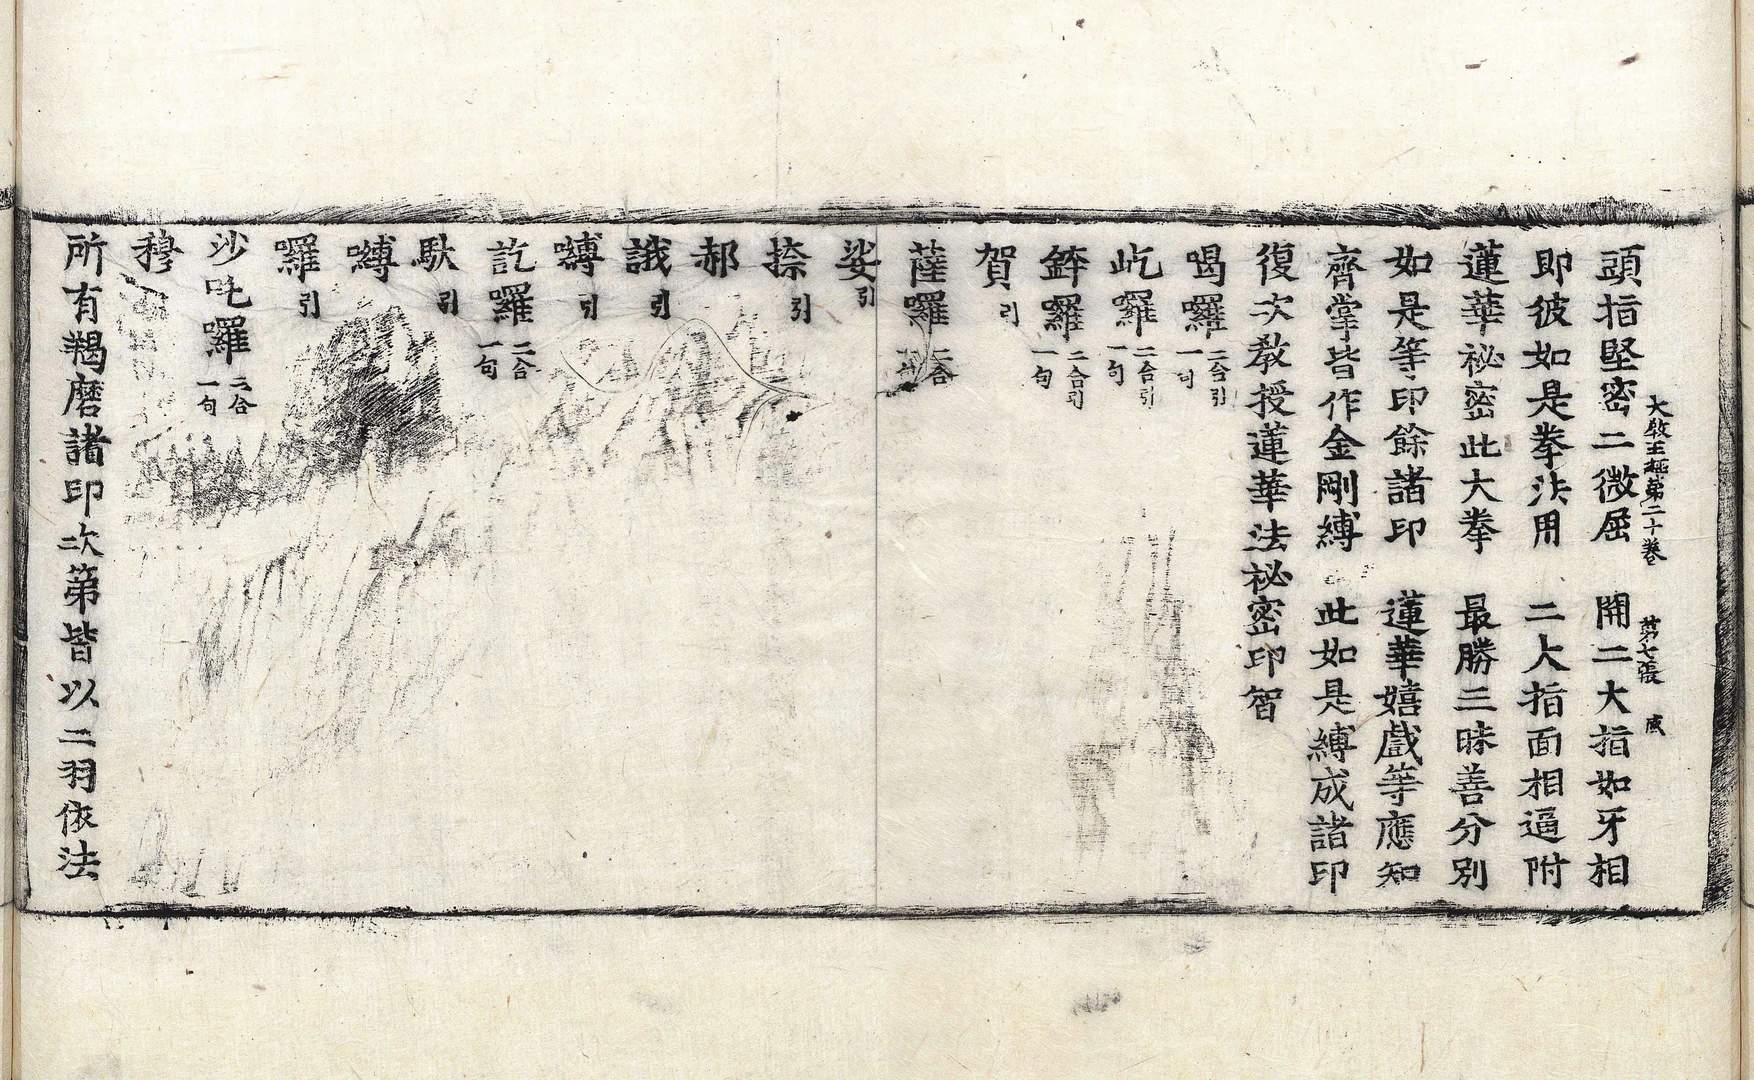 大教王經第二十卷 第七張 底
頭指堅密二微屈 開二大指如牙相
即彼如是拳法用 二大指面相逼附
蓮華祕密此大拳 最勝三昧善分別
如是等印餘諸印 蓮華嬉戲等應知
齊掌皆作金剛縛 此如是縛成諸印
復次教授蓮華法祕密印智
喝囉二合引一句
屹囉二合引一句
鉢囉二合引一句
賀引
薩囉二合
娑引
捺引
郝
誐引
嚩引
訖囉二合一句
馱引
嚩
囉引
沙吒囉二合一句
穆
所有羯磨諸印次第皆以二羽依法